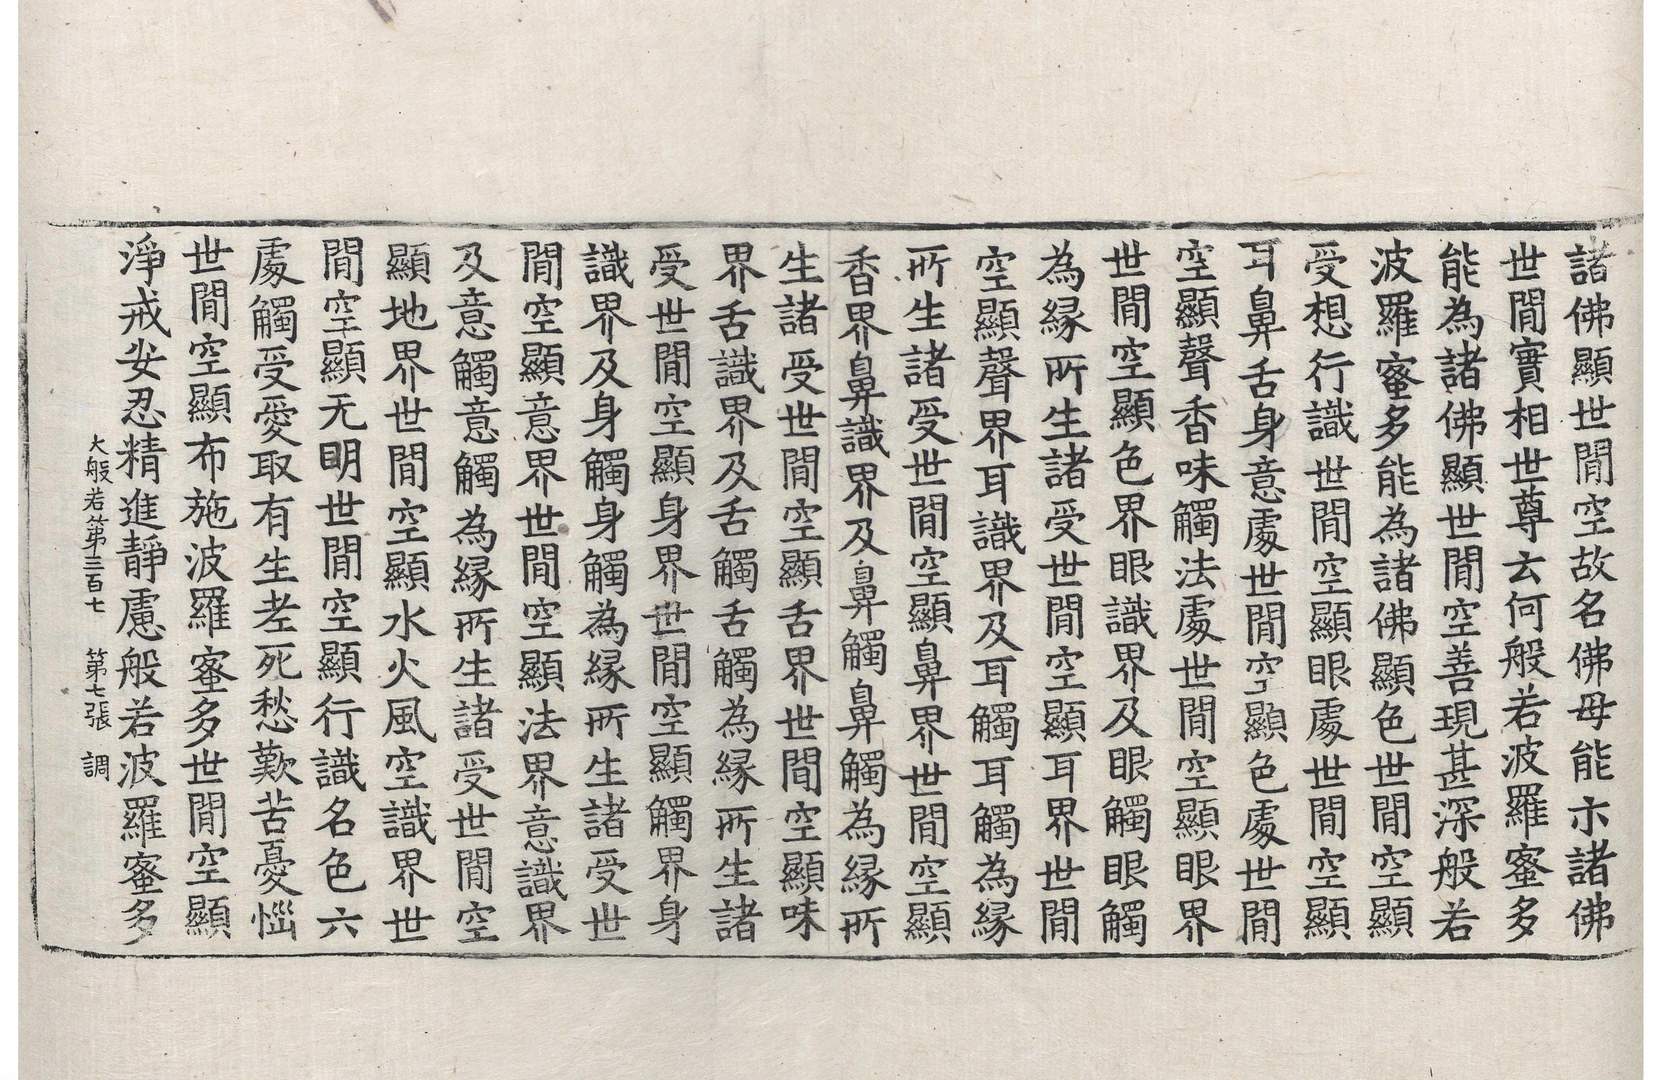 諸佛顯世間空故名佛母能示諸佛
世間實相世尊云何般若波羅蜜多
能為諸佛顯世間空善現甚深般若
波羅蜜多能為諸佛顯色世間空顯
受想行識世間空顯眼處世間空顯
耳鼻舌身意處世間空顯色處世間
空顯聲香味觸法處世間空顯眼界
世間空顯色界眼識界及眼觸眼觸
為緣所生諸受世間空顯耳界世間
空顯聲界耳識界及耳觸耳觸為緣
所生諸受世間空顯鼻界世間空顯
香界鼻識界及鼻觸鼻觸為緣所
生諸受世間空顯舌界世間空顯味
界舌識界及舌觸舌觸為緣所生諸
受世間空顯身界世間空顯觸界身
識界及身觸身觸為緣所生諸受世
間空顯意界世間空顯法界意識界
及意觸意觸為緣所生諸受世間空
顯地界世間空顯水火風空識界世
間空顯无明世間空顯行識名色六
處觸受愛取有生老死愁歎苦憂惱
世間空顯布施波羅蜜多世間空顯
淨戒安忍精進靜慮般若波羅蜜多
大般若第三百七 第七張 調